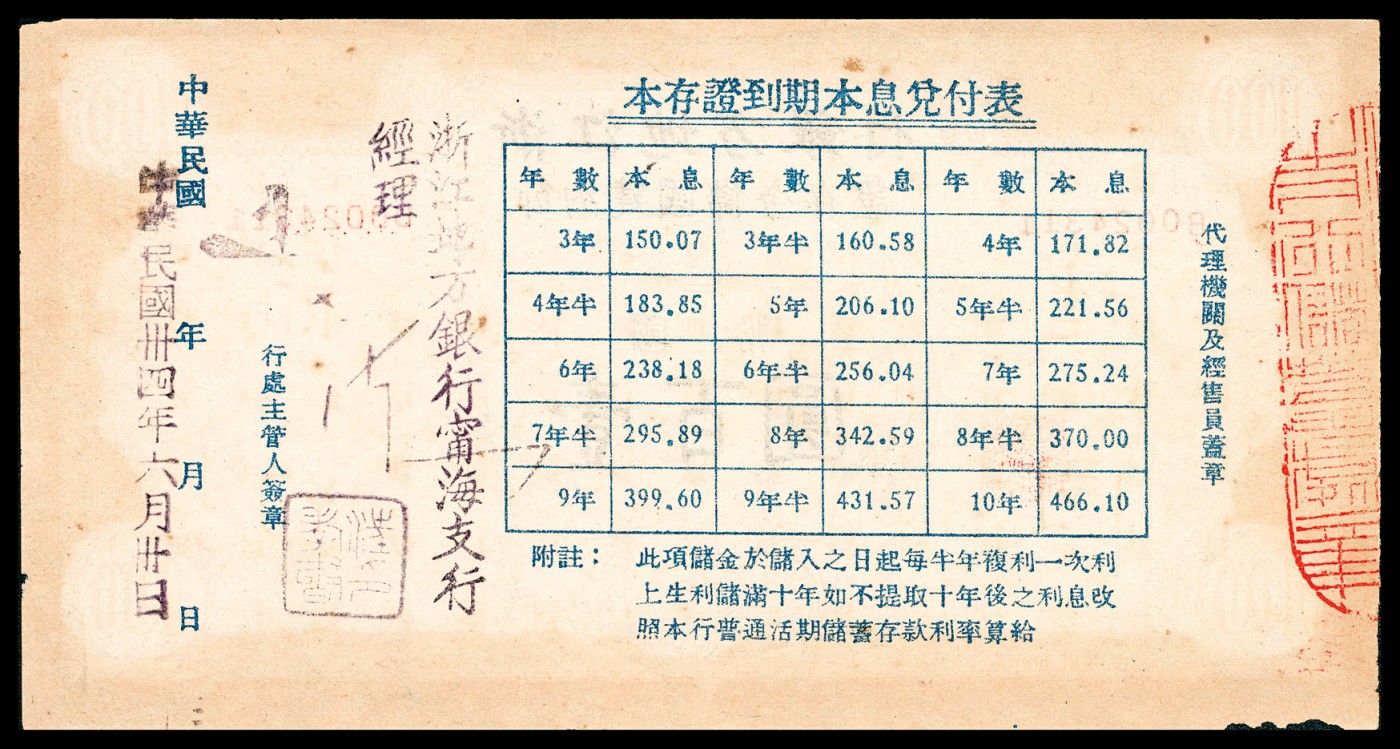 本存證到期本息兌付表
年數 本息 年數 本息 年數 本息
3年 150.07 3年半 160.58 4年 171.82
4年半 183.85 5年 206.10 5年半 221.56
6年 238.18 6年半 256.04 7年 275.24
7年半 295.89 8年 342.59 8年半 370.00
9年 399.60 9年半 431.57 10年 466.10
附註： 此項儲金於儲入之日起每半年複利一次利
上生利儲滿十年如不提取十年後之利息改
照本行普通活期儲蓄存款利率算給
代理機關及經售員蓋章
浙江地方銀行甯海支行
經理
行處主管人簽章
中華民國 年 月 日
中華民國卅四年六月卅日